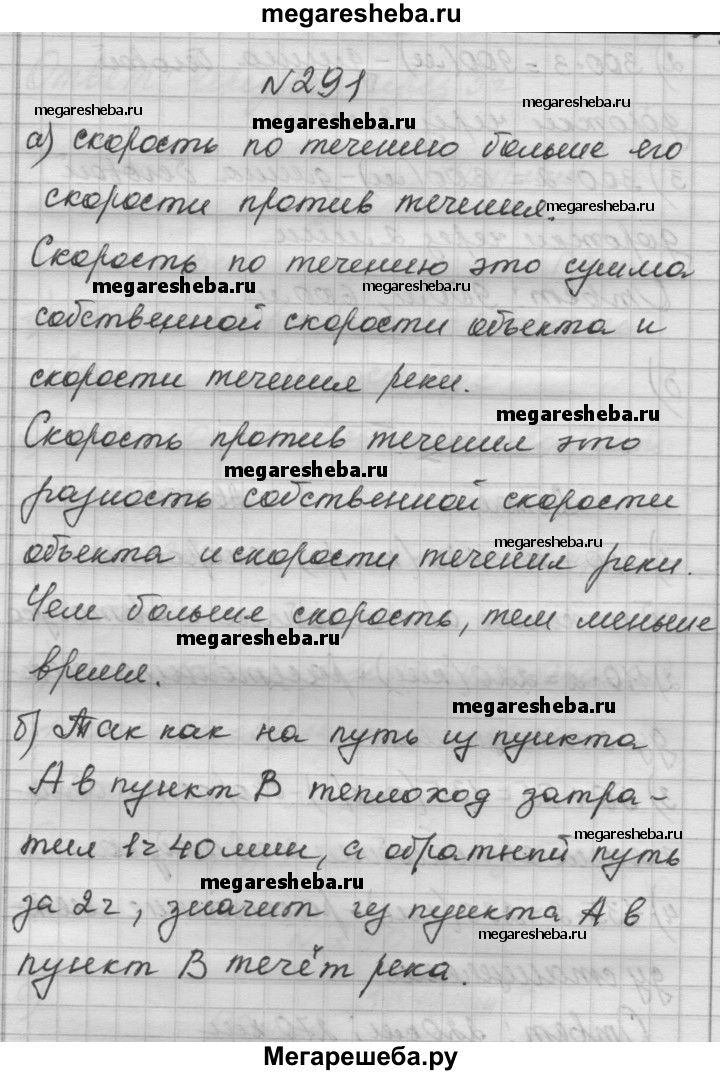 megaresheba.ru
N291
megaresheba.ru
megaresheba.ru
megaresheba.ru
а) скорость по течению больше его
скорости против течения.
megaresheba.ru
Скорость по течению это сумма
megaresheba.ru
megaresheba.ru
собственной скорости объекта и
скорости течения реки.
megaresheba.ru
Скорость против течения это
megaresheba.ru
разность собственной скорости
megaresheba.ru
объекта и скорости течения реки.
Чем больше скорость, тем меньше
megaresheba.ru
время.
megaresheba.ru
б) Так как на путь из пункта
А в пункт В теплоход затра-
megaresheba.ru
тил 1ч 40мин, а обратный путь
megaresheba.ru
за 2ч, значит из пункта А в
megaresheba.ru
пункт В течёт река.
Мегарешеба.ру